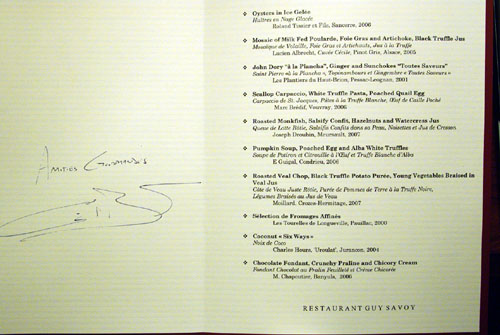 Amitiés Gourmandes
❖ Oysters in Ice Gelée
Huîtres en Nage Glacée
Roland Tissier et Fils, Sancerre, 2006
❖ Mosaic of Milk Fed Poularde, Foie Gras and Artichoke, Black Truffle Jus
Mosaïque de Volaille, Foie Gras et Artichauts, Jus à la Truffe
Lucien Albrecht, Cuvée Cécile, Pinot Gris, Alsace, 2005
❖ John Dory "à la Plancha", Ginger and Sunchokes "Toutes Saveurs"
Saint Pierre «à la Plancha», Topinambours et Gingembre « Toutes Saveurs »
Les Plantiers du Haut-Brion, Pessac-Léognan, 2001
❖ Scallop Carpaccio, White Truffle Pasta, Poached Quail Egg
Carpaccio de St. Jacques, Pâtes à la Truffe Blanche, Œuf de Caille Poché
Marc Brédif, Vouvray, 2006
❖ Roasted Monkfish, Salsify Confits, Hazelnuts and Watercress Jus
Queue de Lotte Rôtie, Salsifis Confits dans sa Peau, Noisettes et Jus de Cresson
Joseph Drouhin, Meursault, 2007
❖ Pumpkin Soup, Poached Egg and Alba White Truffles
Soupe de Potiron et Citrouille à l'Œuf et Truffe Blanche d'Alba
E Guigal, Condrieu, 2006
❖ Roasted Veal Chop, Black Truffle Potato Purée, Young Vegetables Braised in
Veal Jus
Côte de Veau Juste Rôtie, Purée de Pommes de Terre à la Truffe Noire,
Légumes Braisés au Jus de Veau
Moillard, Crozes-Hermitage, 2007
❖ Sélection de Fromages Affinés
Les Tourelles de Longueville, Pauillac, 2000
❖ Coconut « Six Ways »
Noix de Coco
Charles Hours, 'Uroulat', Jurancon, 2004
❖ Chocolate Fondant, Crunchy Praline and Chicory Cream
Fondant Chocolat au Pralin Feuilleté et Crème Chicorée
M. Chapoutier, Banyuls, 2006
RESTAURANT GUY SAVOY